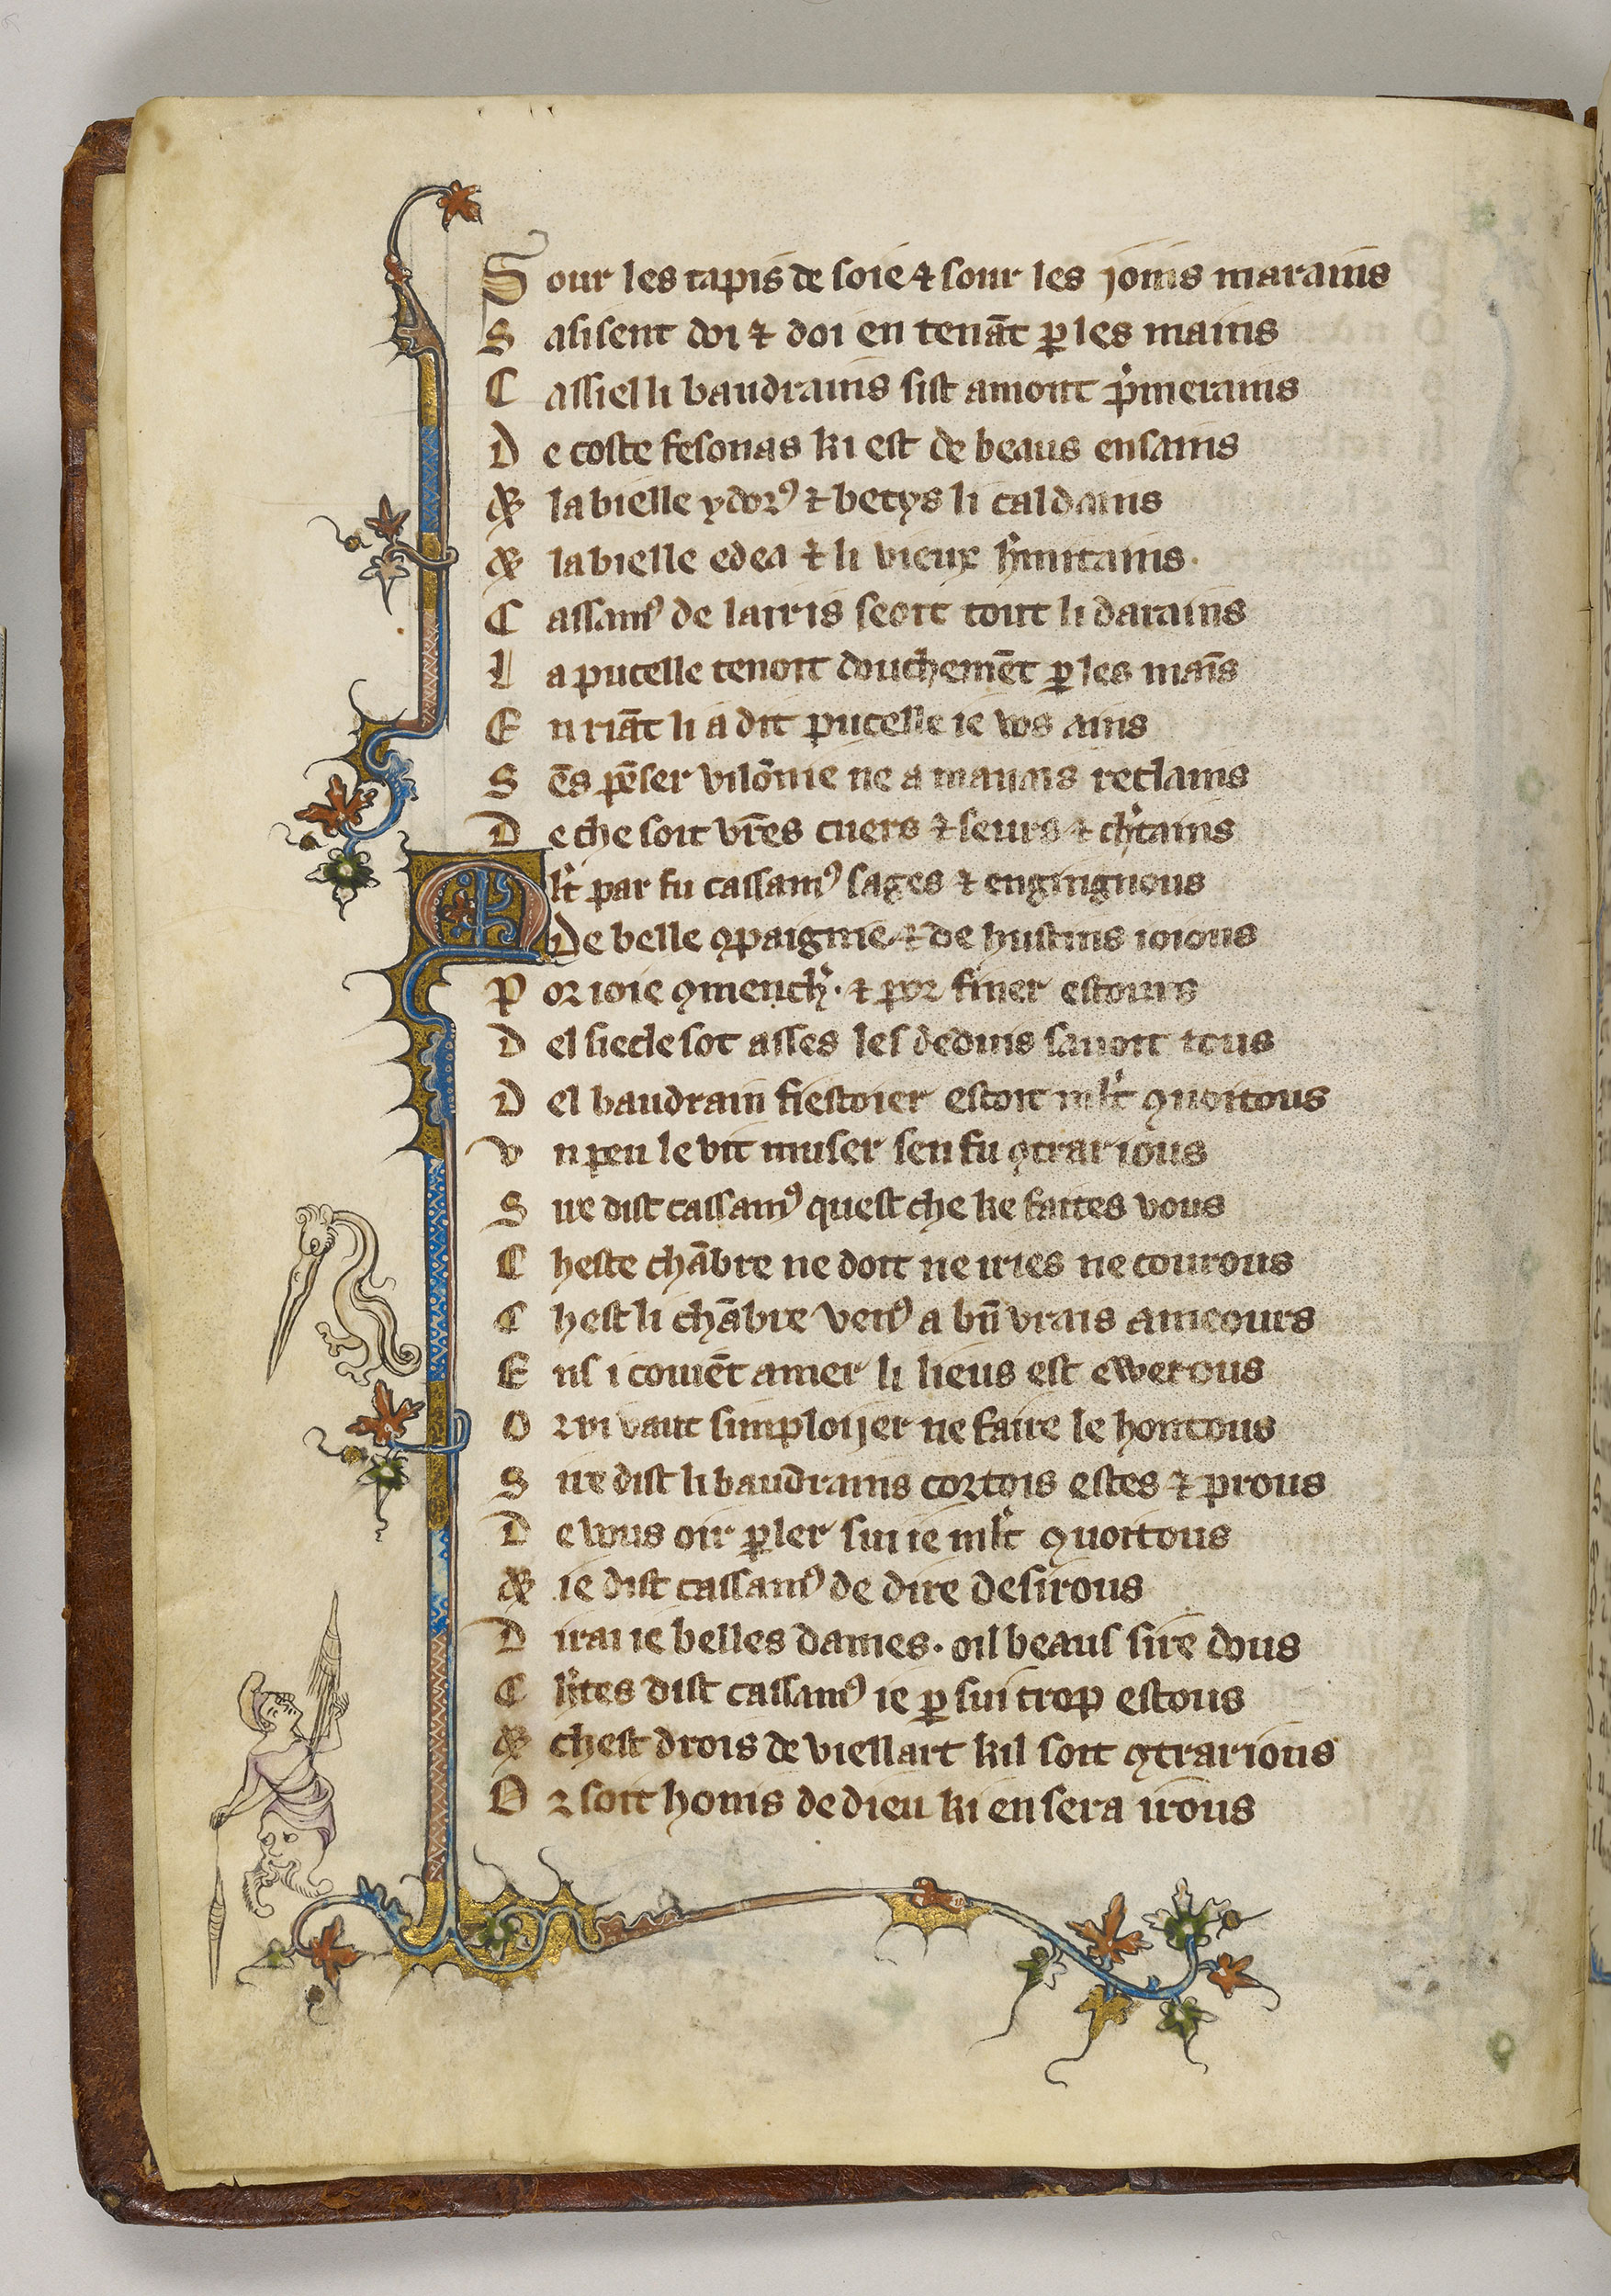 Sour les tapis de soie ⁊ sour les jons marains
Sasisent doi ⁊ doi en tenāt ꝑ les mains
Cassiel li baudrains sist amont pᵢmerains
De coste fesonas ki est de beaus ensains
⁊ la bielle ydorꝰ ⁊ betys li caldains
⁊ la bielle edea ⁊ li vieux hᵢmitains.
Cassamꝰ de lairis seoit tout li darains
La pucelle tenoit douchemēt ꝑ les maīs
En riāt li a dit pucelle ie vos ains
Sēs pēser vilōnie ne a mauais reclains
De che soit vr̄es cuers ⁊ seurs ⁊ chᵢtains
Ml̄t par fu cassamꝰ sages ⁊ engingnous
De belle ꝯpaignie ⁊ de hustins ioious
Por ioie ꝯmenchᵢ. ⁊ por finer estours
Del siecle sot asses les deduis sauoit tous
Del baudrain fiestoier estoit ml̄t ꝯuoitous
Un peu le vit muser sen fu ꝯtrarious
Sire dist cassamꝰ quest che ke faites vous
Cheste chābre ne doit ne iries ne courous
Chest li chābre venꝰ a bn̄ vrais ameours
Ens i couiēt amer li lieus est ewerous
Or ni vaut simploijer ne faire le hontous
Sire dist li baudrains cortois estes ⁊ prous
De vous oir ꝑler sui ie ml̄t ꝯuoitous
⁊ ie dist cassamꝰ de dire desirous
Dirai ie belles dames. oil beaus sire dous
Cᵢtes dist cassamꝰ ie ꝑ sui trop estous
⁊ chest drois de viellart kil soit ꝯtrarious
Or soit honis de dieu ki en sera irōus